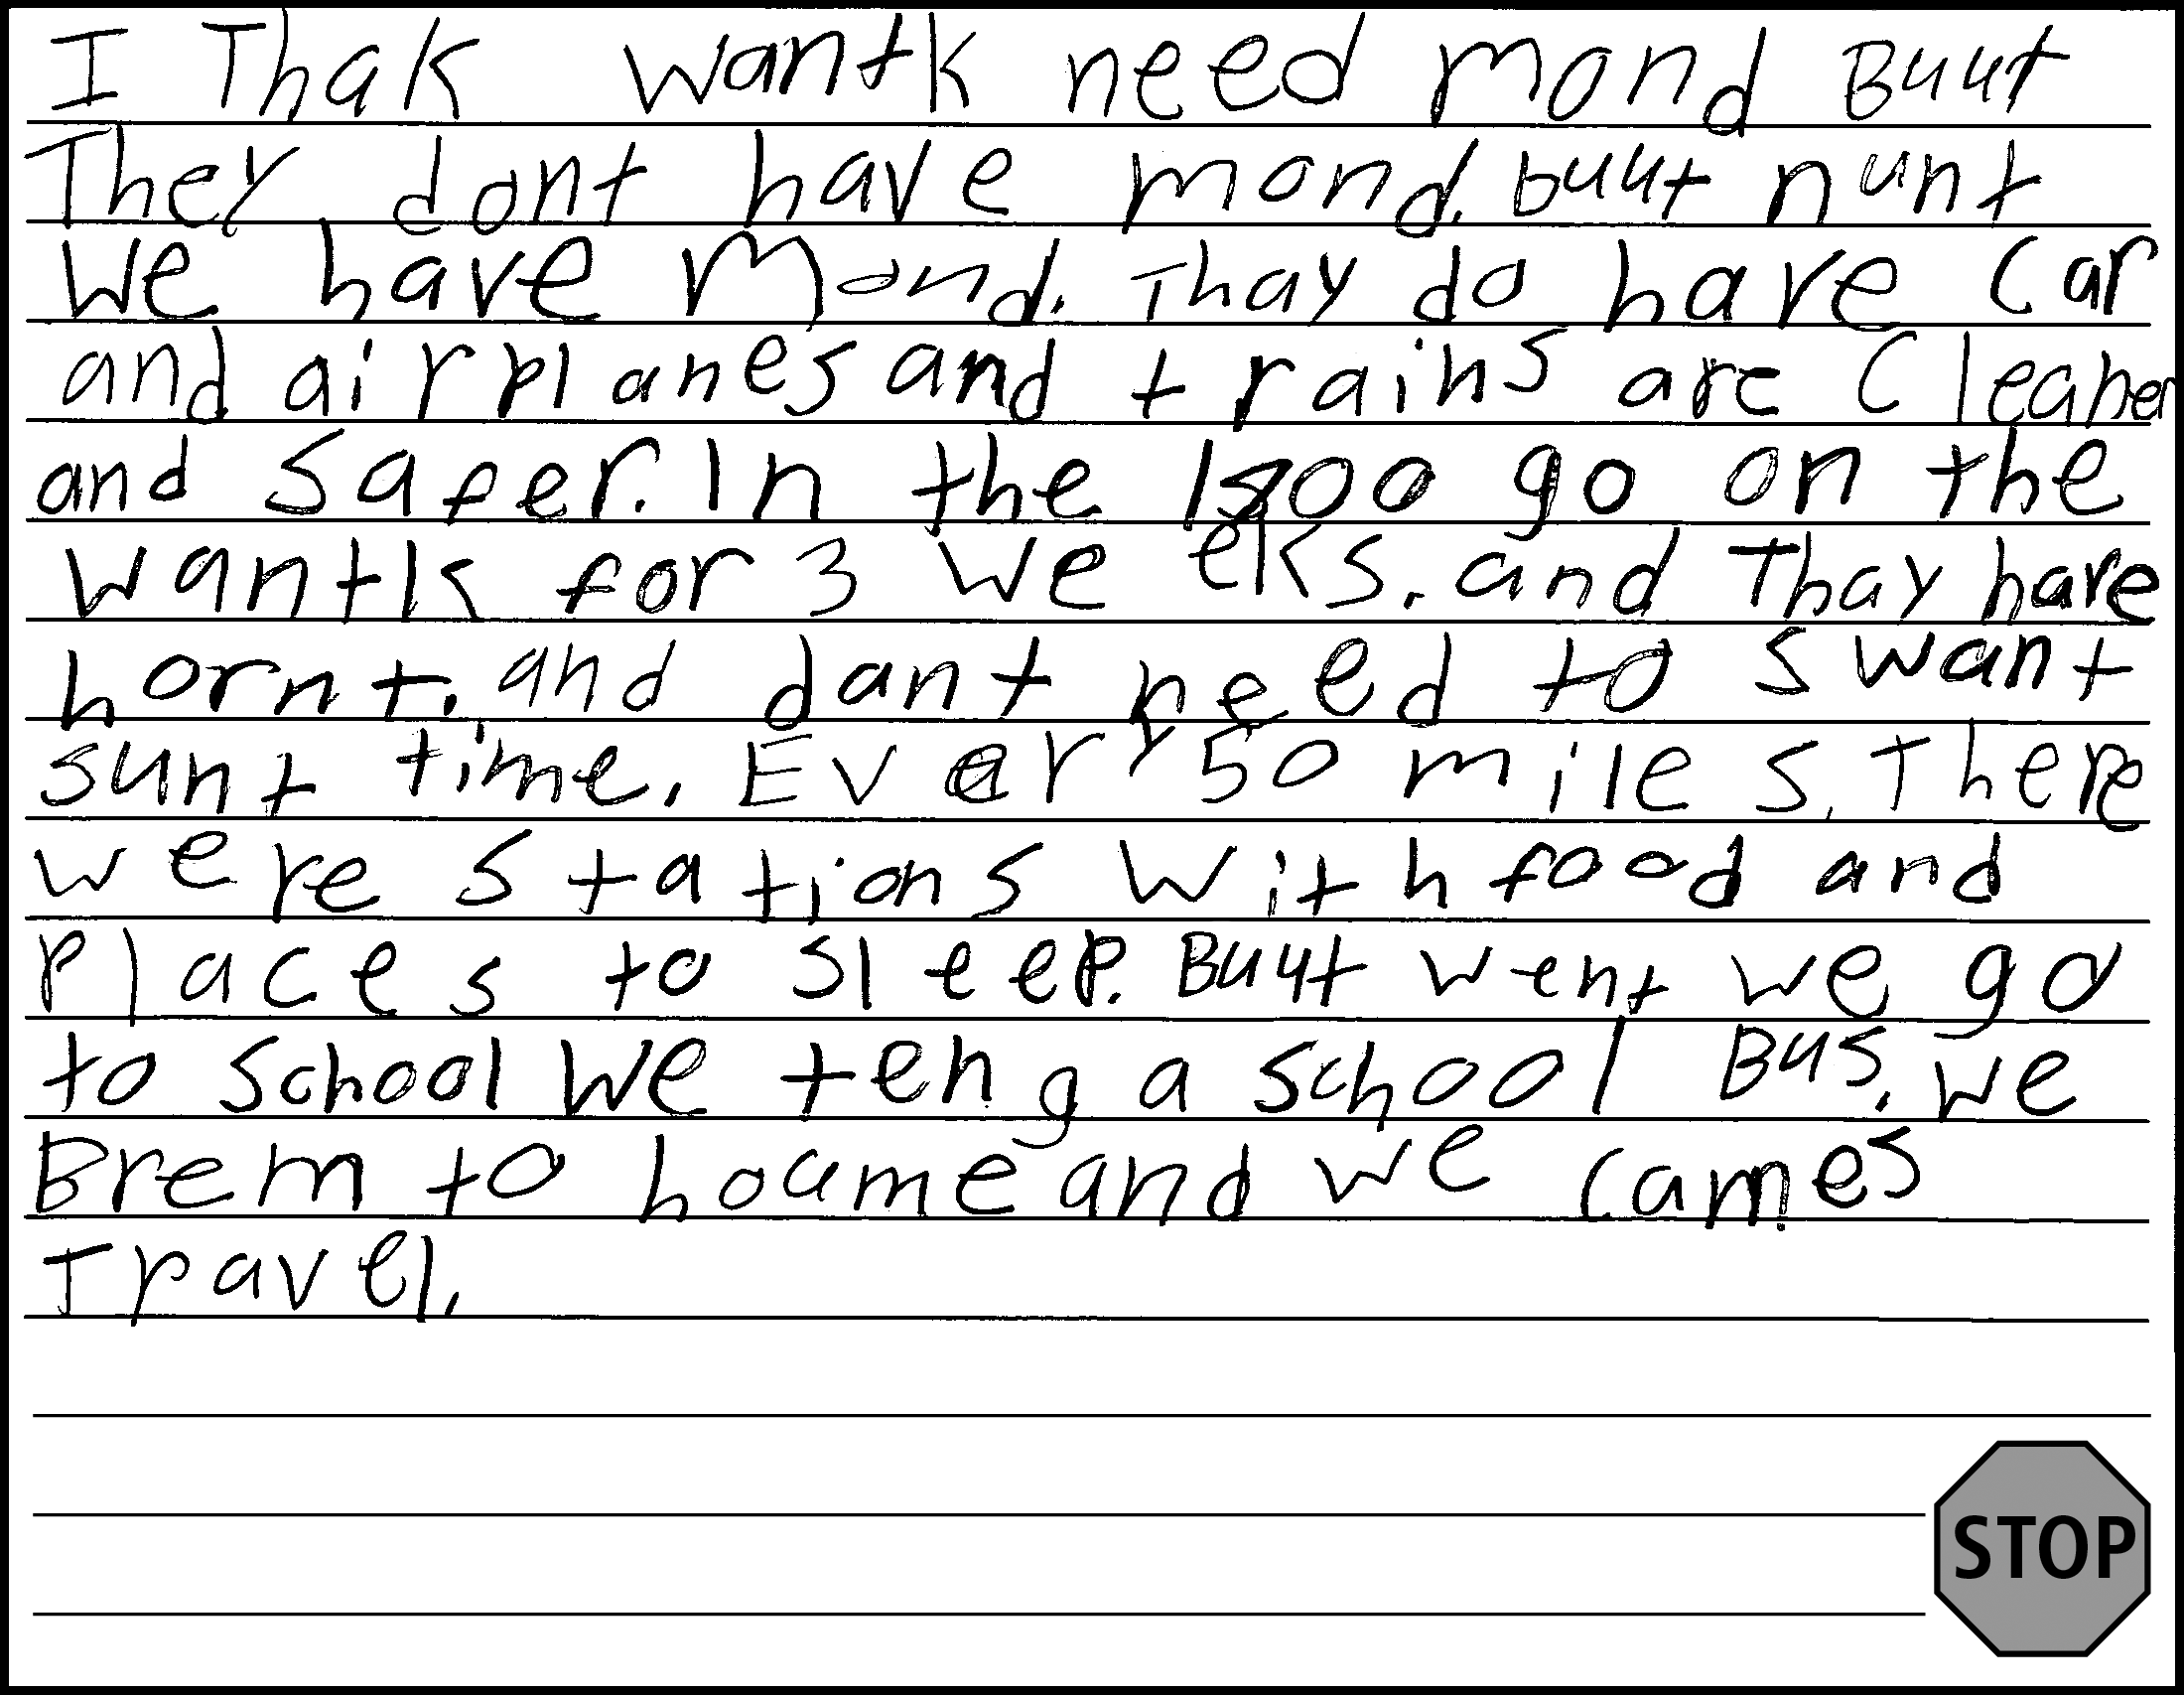 I Thak wantk need mond Buut
They dont have mond. buut nunt
We have Mond. Thay do have Car
and airplanes and trains are Cleaner
and safer. In the 1800 go on the
wantk for 3 we eks. and Thay have
hornt. and dant need to swant
sunt time. Every 50 miles, There
were stations with food and
Places to sleep. Buut went we go
to school We teng a school Bus. we
Brem to houme and we cames
Travel.
STOP